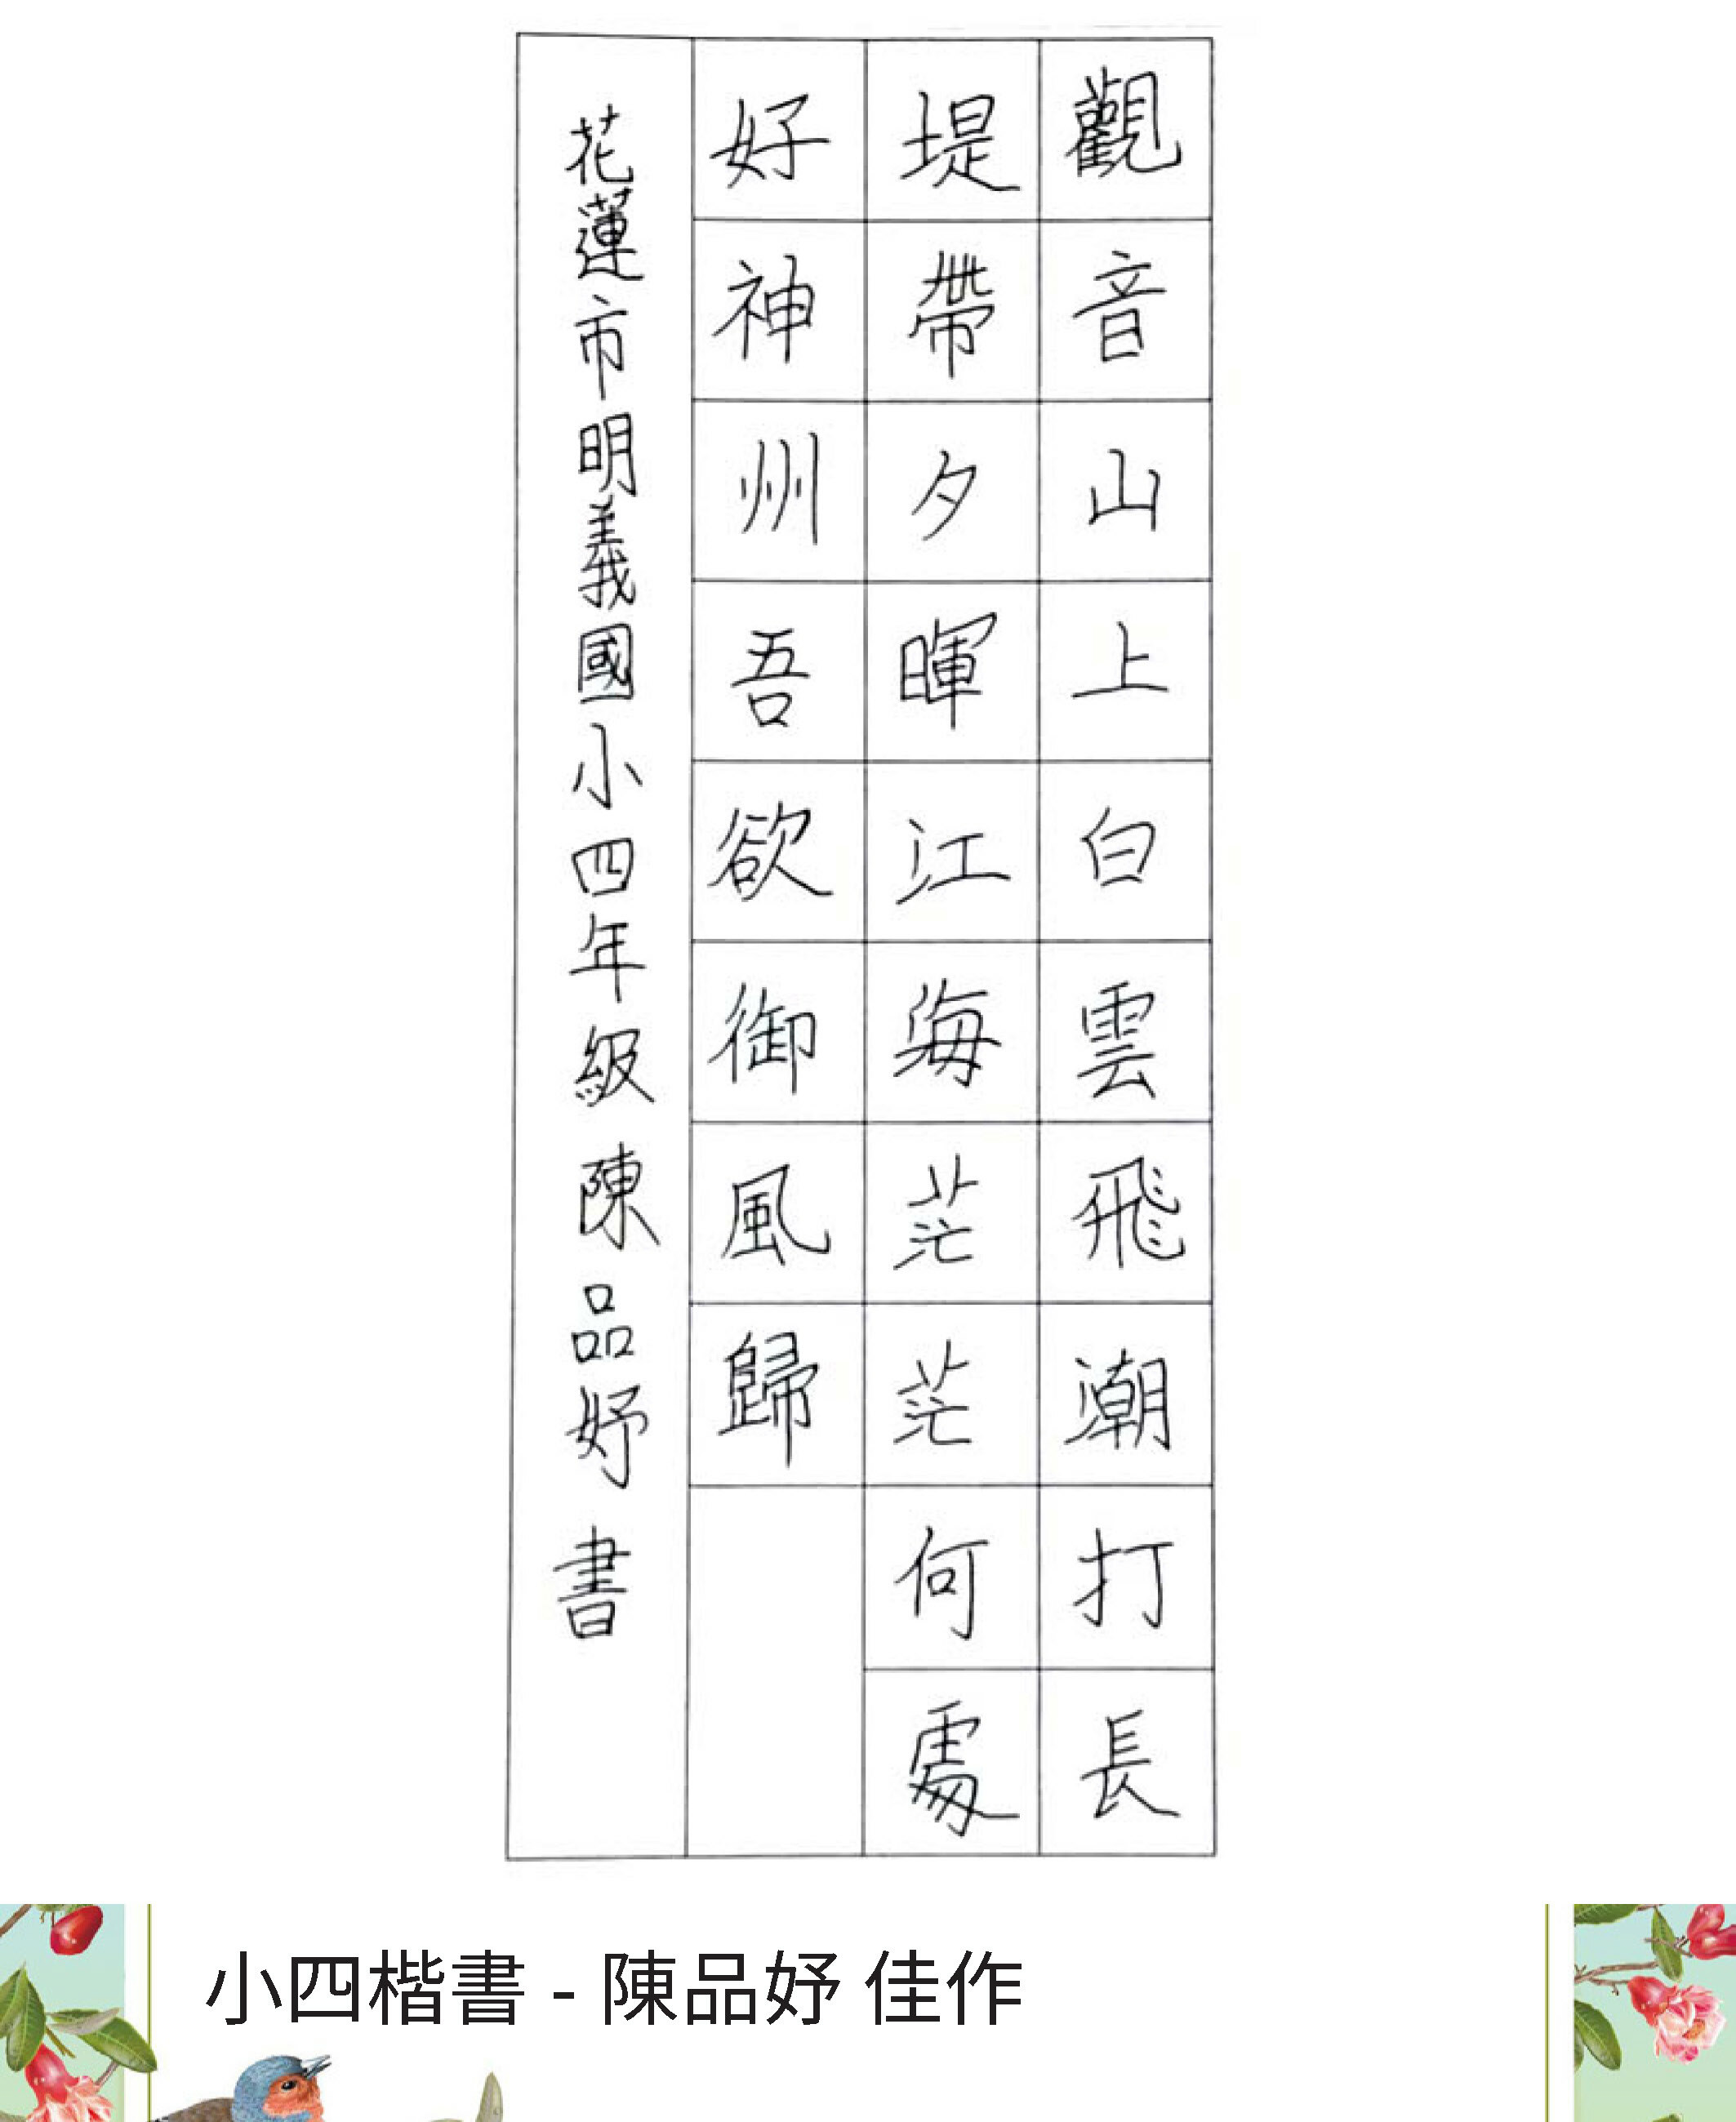 觀音山上白雲飛潮打長
堤帶夕暉江海茫茫何處
好神州吾欲御風歸
花蓮市明義國小四年級陳品妤書
小四楷書 - 陳品妤 佳作